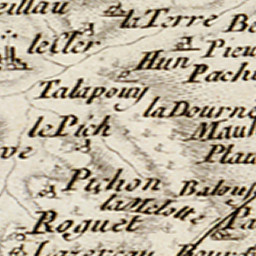 eillau
la Terre Be
le Cler
Pieu
Hun
Pach
Talapouy
la Dourne
le Pich
Maul
ve
Plaa
Pichon
Balous
la Melotte
Roguet
Pa
Lazereau
Bourd